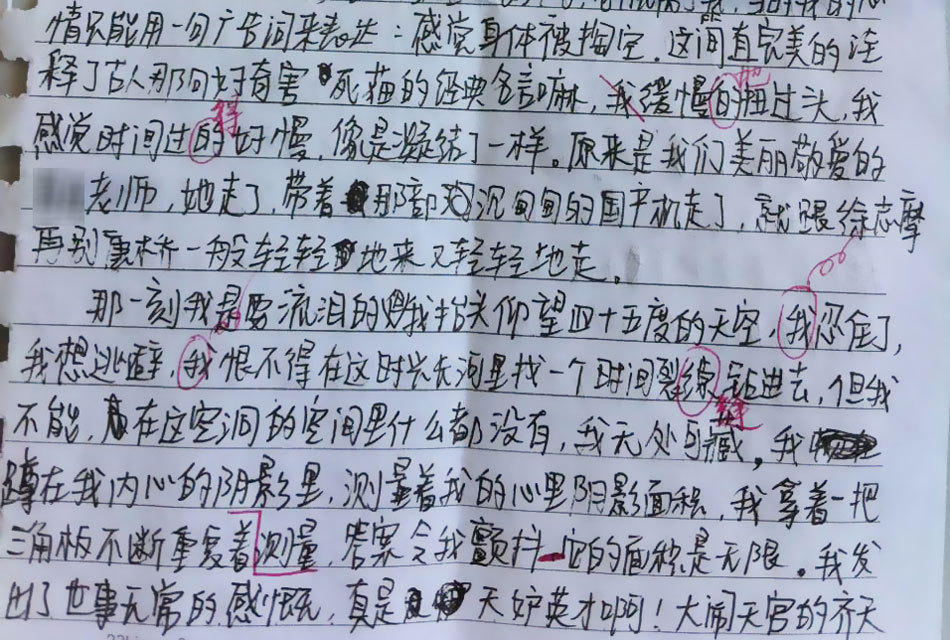 情只能用一句广告词来表达：感觉身体被掏空．这间直完美的注
释了古人那句好有害死猫的经典名言嘛，我缓慢的扭过头，我
地
得
感觉时间过的好慢，像是凝结了一样。原来是我们美丽敬爱的
老师，她走了，带着那部沉甸甸的国产机走了，就跟徐志摩
再别康桥一般轻轻地来又轻轻地走。
那一刻我是要流泪的，我抬头仰望四十五度的天空，我忍住了，
我想逃避，我恨不得在这时光长河里找一个时间裂缐钻进去，但我
缝
不能，在这空洞的空间里什么都没有，我无处可藏，我
蹲在我内心的阴影里，测量着我的心里阴影面积，我拿着一把
三角板不断重复着测量，答案令我颤抖 它的面积是无限。我发
出了世事无常的感慨，真是天妒英才啊！大闹天宫的齐天